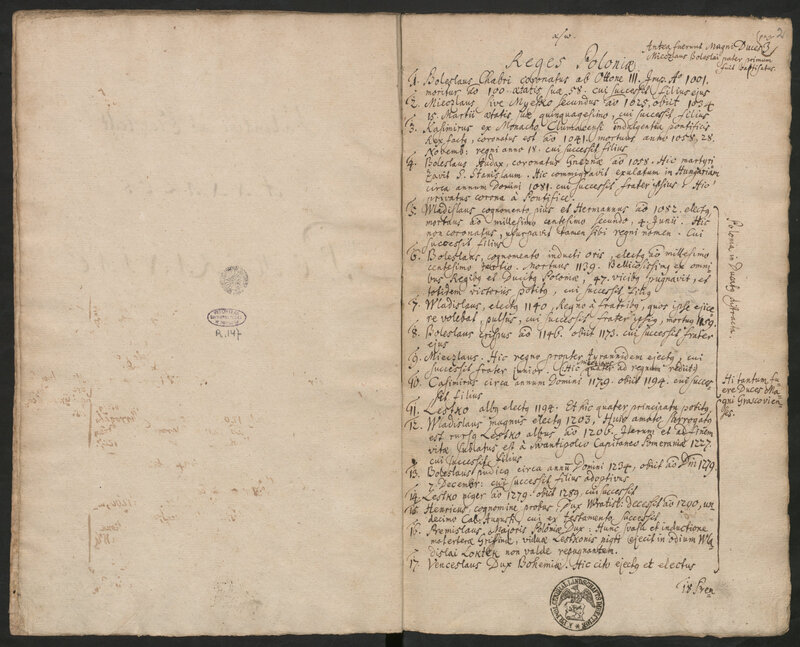 pag 2
Antea fuerunt Magni Duces
Mieczlaus Boleslai pater primum
fuit baptisatus.
Reges Poloniæ
1. Boleslaus Chabri coronatus ab Ottone III. Imp. Aº 1001.
moritur aº ætatis suæ 58. cui successit filius ejus
2. Mieczlaus sive Myesko secundus aº 1025. obiit 1034
15. Martii ætatis suæ quinquagesimo, cui successit filius
3. Kasimirus ex Monacho Cluniacensi indulgentia pontificis
Rex factus, coronatus est aº 1041. mortuus anno 1058. 28.
Novemb: regni anno 18. cui successit filius
4. Boleslaus Audax, coronatus Gneznæ aº 1058. Hic martyri
zavit S. Stanislaum. Hic commigravit exulatum in Hungariam
circa annum Domini 1081. cui successit frater ipsius. Hic
privatus corona à Pontifice.
5. Wladislaus cognomento pius et Hermannus aº 1082. electus
mortuus aº millesimo centesimo secundo, 4. Junii. Hic
non coronatus, usurpavit tamen sibi regni nomen. Cui
successit filius
6. Boleslaus, cognomento inducti oris, electus aº millesimo
centesimo tertio. Mortuus 1139. Bellicosissimus ex omni
bus Regibus et Ducibus Poloniæ, 47. vicibus pugnavit, et
totidem victoriis potitus, cui successit filius
7. Wladislaus, electus 1140, Regno à fratribus, quos ipse ejice
re volebat, pulsus, cui successit frater ipsius, mortuus 1159.
8. Boleslaus crispus aº 1146. obiit 1173. cui successit frater
ejus
9. Mieczlaus. Hic regno propter tyrannidem ejectus, cui
successit frater junior. Hic quater ad regnum rediit
10. Casimirus circa annum Domini 1179. obiit 1194. cui succes
sit filius
11. Lestko albus electus 1194. Et hic quater principatu potitus.
12. Wladislaus magnus electus 1203. Huic amoto surrogatus
est rursus Lestko albus aº 1206. Iterum et ad finem
vitæ sublatus est à Swantigolco Capitaneo Pomeraniæ 1227.
cui successit filius
13. Boleslaus pudicus circa annum Domini 1234, obiit aº Dni 1279.
7. Decembr: cui successit filius adoptivus
14. Lestko niger aº 1279. obiit 1289. cui successit
15. Henricus, cognomine probus Dux Wratisl: decessit aº 1290, un
decimo Cal: Augusti, cui ex testamento successit
16. Premislaus Majoris Poloniæ Dux. Hunc svasu et inductione
materteræ Grifinæ, viduæ Lestkonis nigri ejecit in odium Wla
dislai Loktek non valde repugnantem.
17. Venceslaus Dux Bohemiæ. Hic cito ejectus et electus
18. Prem
Polonia in Ducatus distracta.
Hi tantum fu
ere Duces Ma
gni Cracovien
ses
R. 147